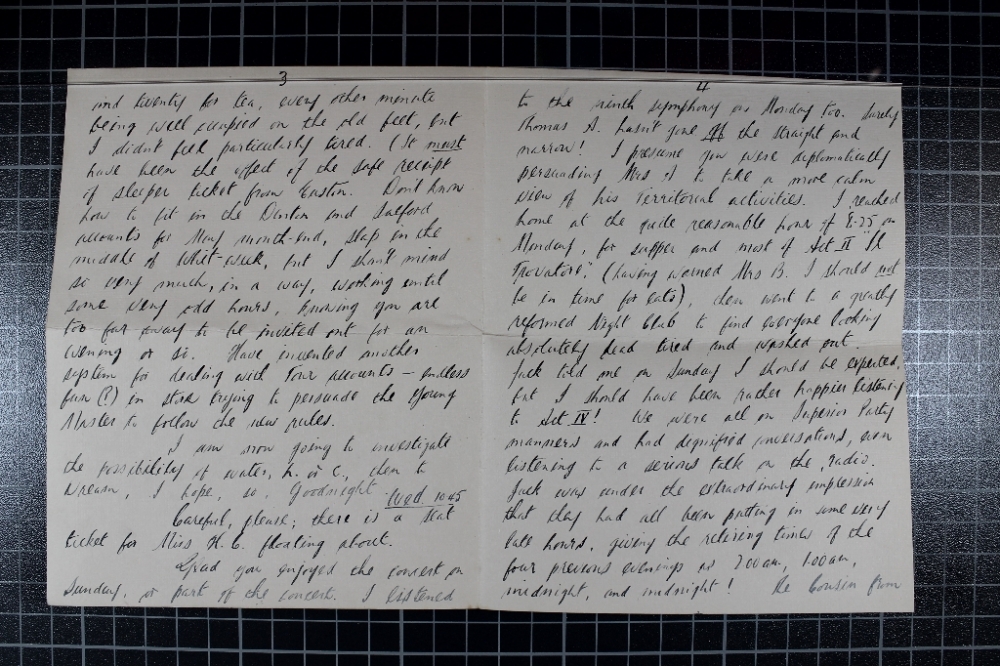 3
and twenty for tea, every other minute
being well occupied on the old feet, but
I didn't feel particularly tired. (It must
have been the effect of the safe receipt
of sleeper ticket from Euston. Don't know
how to fit in the Denton and Salford
accounts for May month-end, slap in the
middle of Whit-week, but I shan't mind
so very much, in a way, working until
some very odd hours, knowing you are
too far away to be invited out for an
evening or so. Have invented another
system for dealing with Tour accounts – endless
fun (?) in store trying to persuade the Young
Master to follow the new rules.
I am now going to investigate
the possibility of water, h. or c., then to
dream, I hope, so Goodnight
Wed 10.45
Careful, please; there is a seat
ticket for Miss H. C. floating about.
Glad you enjoyed the concert on
Sunday, or part of the concert. I listened
4
to the ninth symphony on Monday too. Surely
Thomas A. hasn't gone off the straight and
narrow! I presume you were diplomatically
persuading Mrs A to take a more calm
view of his Territorial activities. I reached
home at the quite reasonable hour of 8-25 on
Monday, for supper and most of Act II "Il
Trovatore," (having warned Mrs B. I should not
be in time for eats), then went to a greatly
reformed Night Club to find everyone looking
absolutely dead tired and washed out.
Jack told me on Sunday I should be expected,
but I should have been rather happier listening
to Act IV! We were all on Superior Party
manners and had dignified conversations, even
listening to a serious talk on the radio.
Jack was under the extraordinary impression
that they had all been putting in some very
late hours, giving the retiring times of the
four previous evenings as 2.00am, 1.00am,
midnight, and midnight! The Cousin from